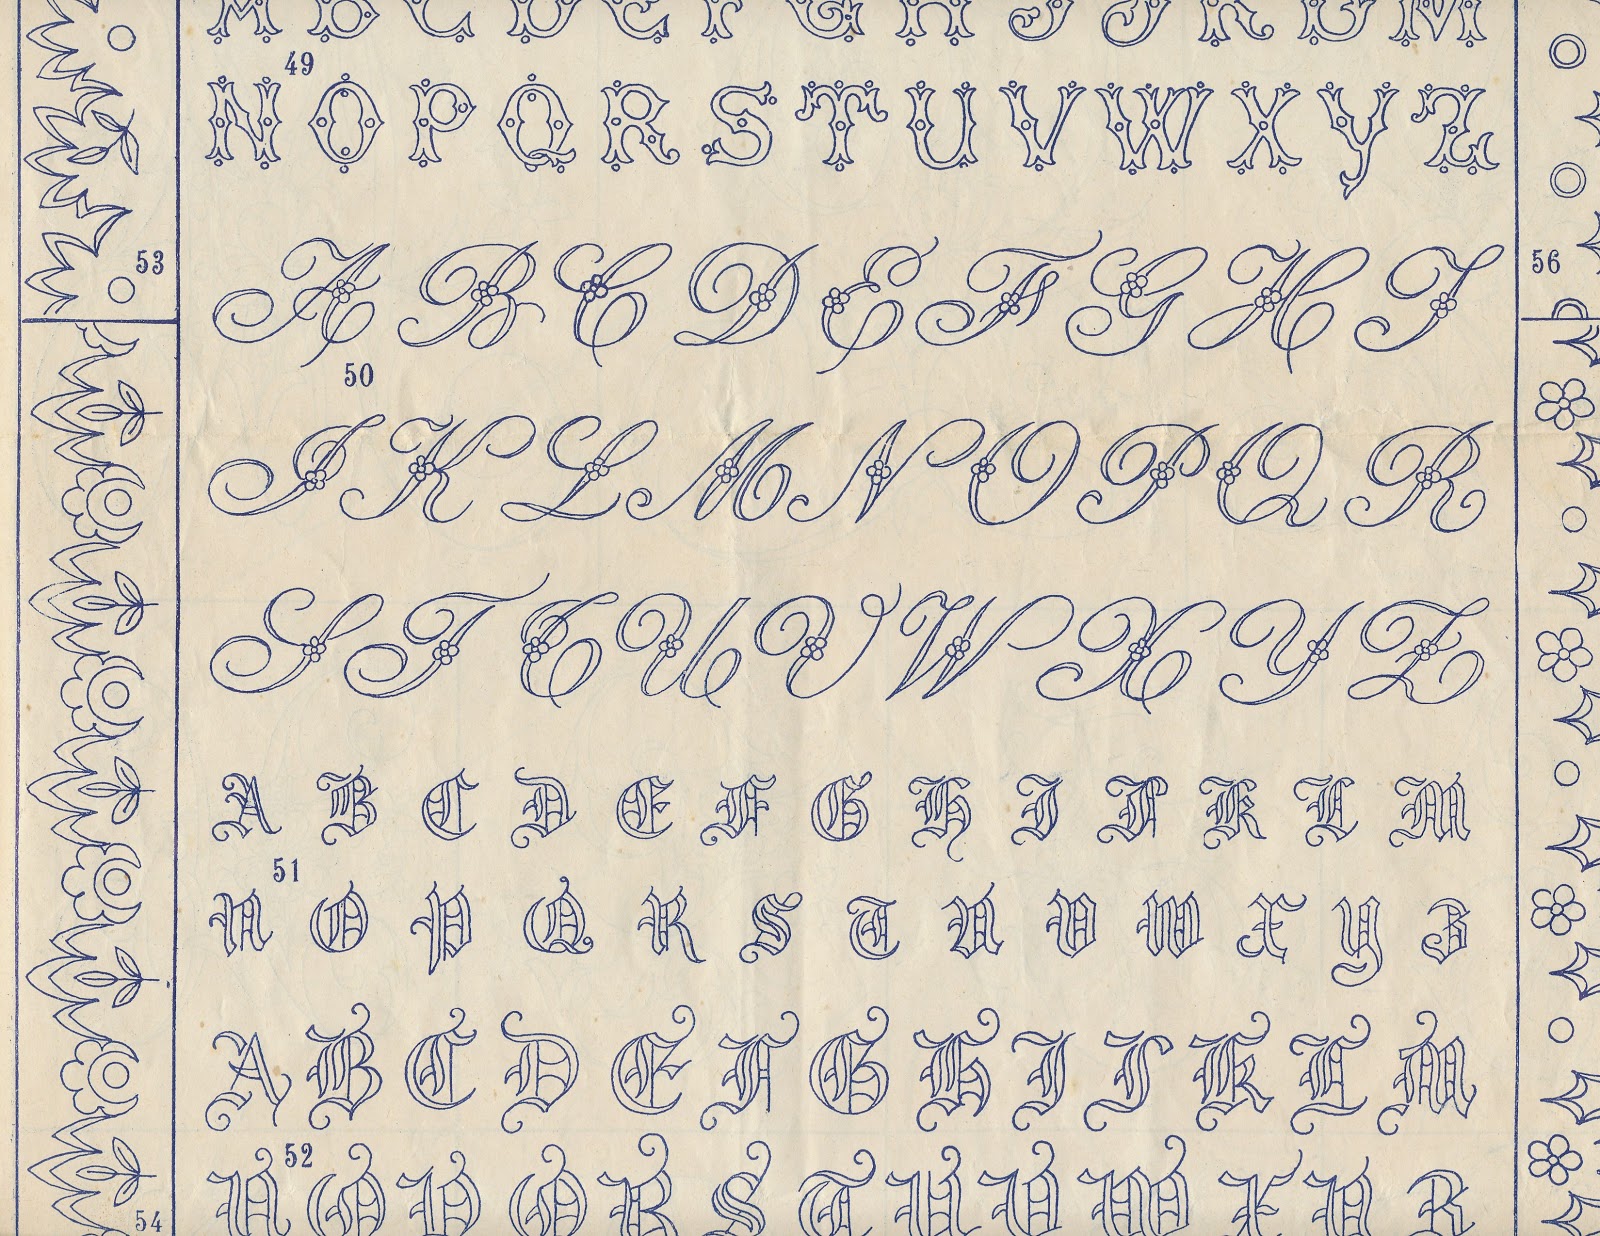 A B C D E F G H I J K L M
49
N O P Q R S T U V W X Y Z
53
56
A B C D E F G H I
50
J K L M N O P Q R
S T T U V W X Y Z
A B C D E F G H I J K L M
51
N O P Q R S T U V W X Y Z
A B C D E F G H I J K L M
52
N O P Q R S T U V W X Y Z
54